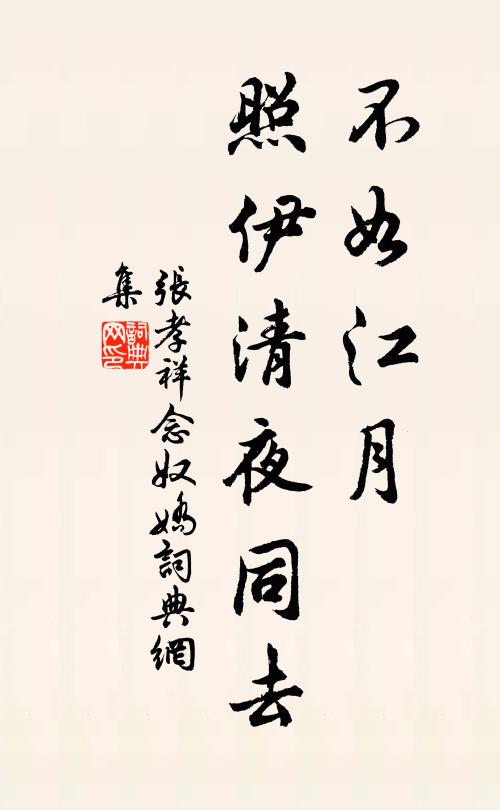 不如江月
照伊清夜同去
張孝祥念奴嬌詞典網
集
詞典網印